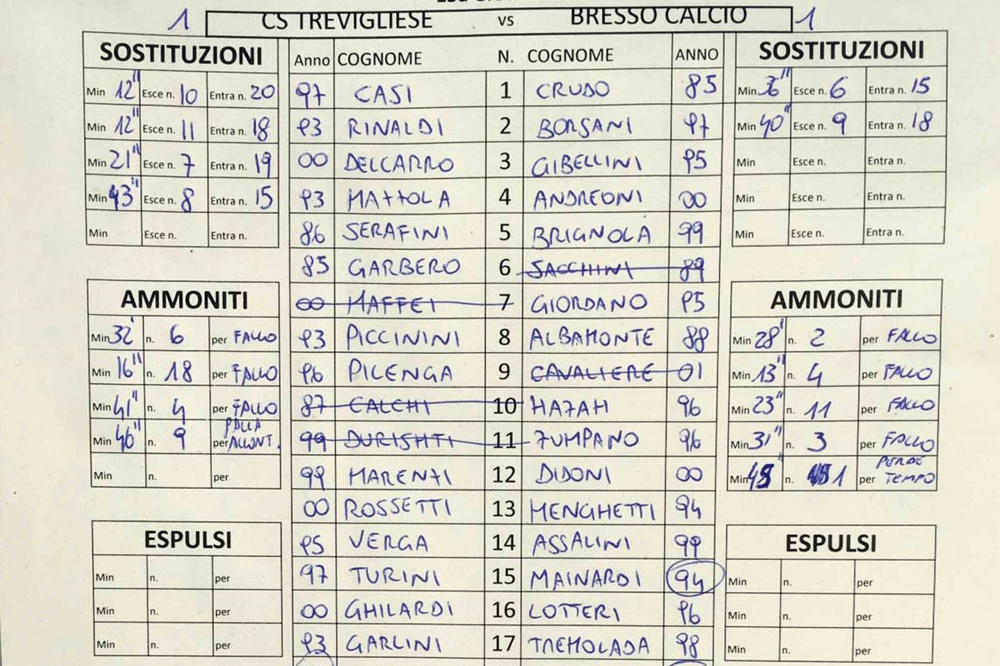 1 CS TREVIGLIESE vs BRESSO CALCIO 1
SOSTITUZIONI
Min 12" Esce n. 10 Entra n. 20
Min 12" Esce n. 11 Entra n. 18
Min 21" Esce n. 7 Entra n. 19
Min 43" Esce n. 8 Entra n. 15
Min Esce n. Entra n.
AMMONITI
Min 32' n. 6 per FALLO
Min 16" n. 18 per FALLO
Min 41" n. 4 per FALLO
Min 46" n. 9 per PALLA ALLONT.
Min n. per
ESPULSI
Min n. per
Min n. per
Min n. per
Anno COGNOME N. COGNOME ANNO
97 CASI 1 CRUDO 85
93 RINALDI 2 BORSANI 97
00 DELCARRO 3 GIBELLINI 95
93 MATTOLA 4 ANDREONI 00
86 SERAFINI 5 BRIGNOLA 99
85 GARBERO 6 SACCHINI 89
00 MAFFEI 7 GIORDANO 95
93 PICCININI 8 ALBAMONTE 88
96 PICENGA 9 CAVALIERE 01
87 CALCHI 10 HAZAH 96
99 DURISHTI 11 ZUMPANO 96
99 MARENZI 12 DIDONI 00
00 ROSSETTI 13 MENGHETTI 94
95 VERGA 14 ASSALINI 99
97 TURINI 15 MAINARDI 94
00 GHILARDI 16 LOTTERI 96
93 GARLINI 17 TREMOLADA 98
SOSTITUZIONI
Min 36" Esce n. 6 Entra n. 15
Min 40" Esce n. 9 Entra n. 18
Min Esce n. Entra n.
Min Esce n. Entra n.
Min Esce n. Entra n.
AMMONITI
Min 28' n. 2 per FALLO
Min 13" n. 4 per FALLO
Min 23" n. 11 per FALLO
Min 31" n. 3 per FALLO
Min 45 n. 1 per PERDE TEMPO
ESPULSI
Min n. per
Min n. per
Min n. per